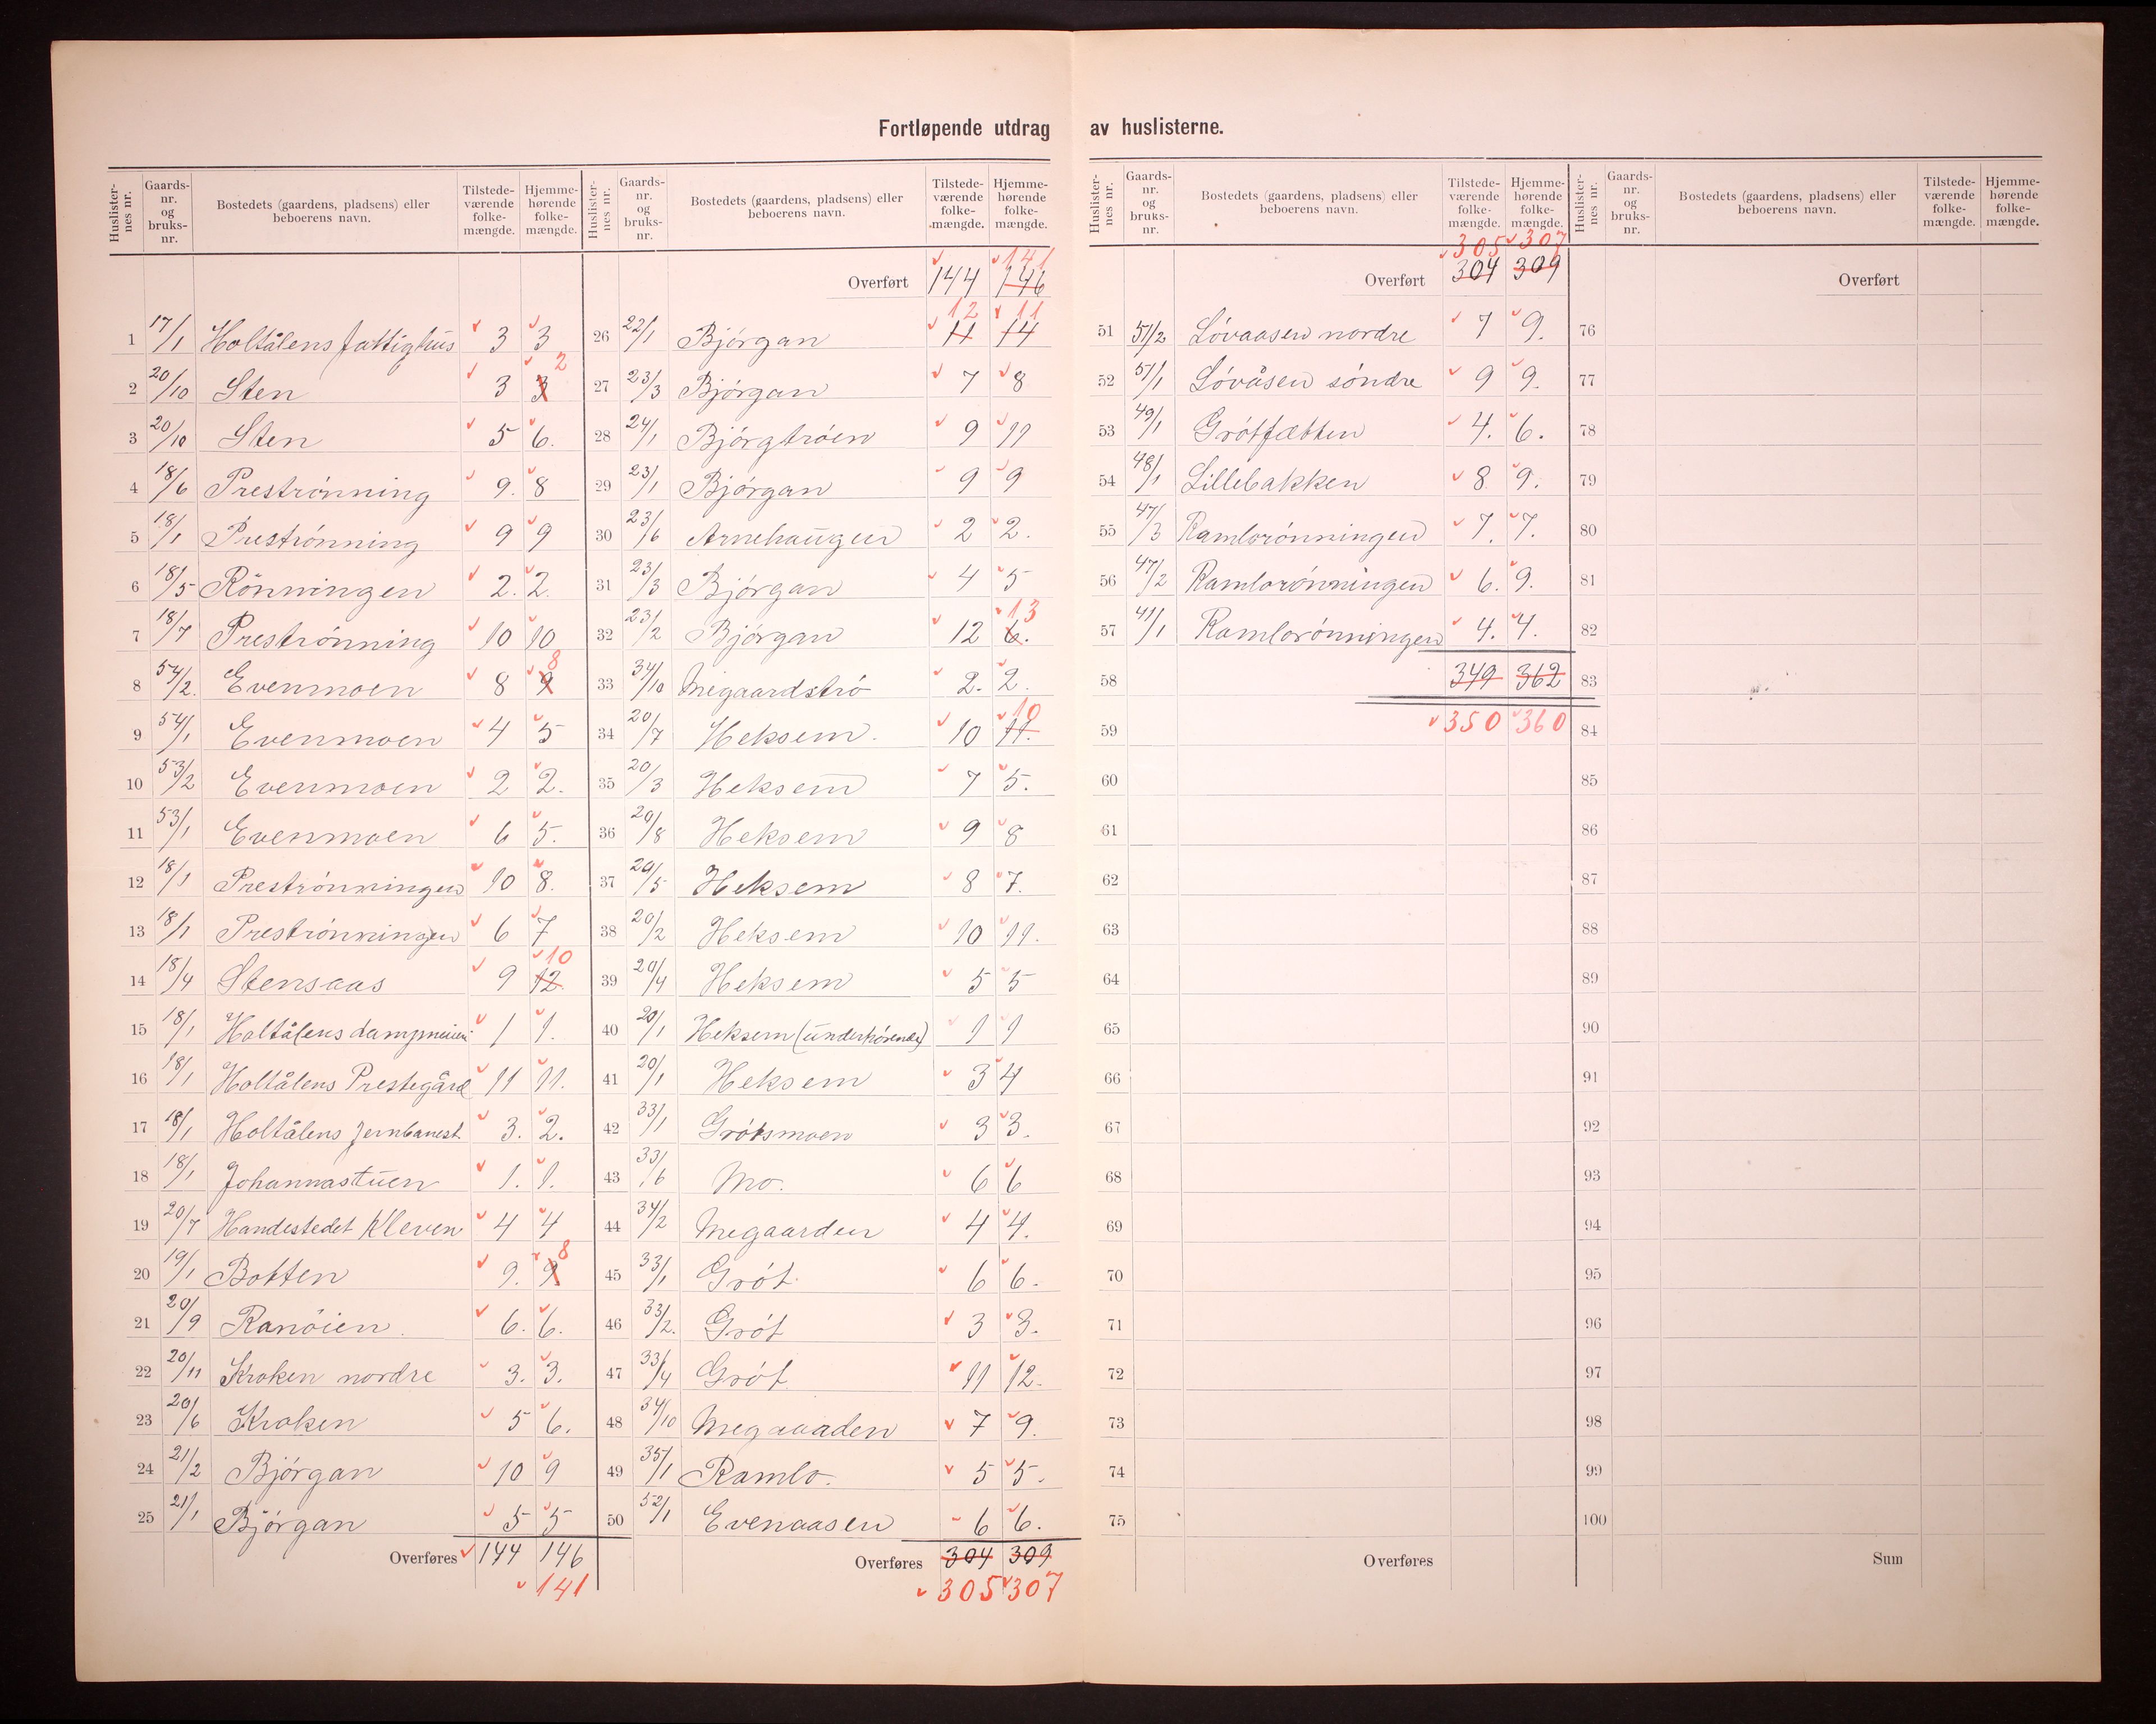 Fortløpende utdrag av huslisterne.
Huslisternes nr. Gaards-nr. og bruks-nr. Bostedets (gaardens, pladsens) eller beboerens navn. Tilstedeværende folkemængde. Hjemmehørende folkemængde.
1 17/1 Holtålens fattighus 3 3
2 20/10 Sten 3 3 2
3 20/10 Sten 5 6.
4 18/6 Preströnning 9. 8
5 18/1 Preströnning 9 9
6 18/5 Rönningen 2. 2.
7 18/7 Preströnning 10 10
8 54/2. Evenmoen 8 9 8
9 54/1 Evenmoen 4 5
10 53/2 Evenmoen 2 2.
11 53/1 Evenmoen 6 5.
12 18/1 Preströnningen 10 8.
13 18/1 Preströnningen 6 7
14 18/4 Stensaas 9 12. 10
15 18/1 Holtålens dampmeieri 1 1.
16 18/1 Holtålens Prestegård 11 11.
17 18/1 Holtålens Jernbanest. 3. 2.
18 18/1 Johannastuen 1. 1.
19 20/7 Handestedet Kleven 4 4
20 19/1 Botten 9. 9. 8
21 20/9 Ranöien. 6. 6.
22 20/11 Kroken nordre 3. 3.
23 20/6 Kroken 5 6.
24 21/2 Bjórgan 10 9
25 21/1 Bjórgan 5 5
Overføres 144 146
141
Huslisternes nr. Gaards-nr. og bruks-nr. Bostedets (gaardens, pladsens) eller beboerens navn. Tilstedeværende folkemængde. Hjemmehørende folkemængde.
141
Overført 144 146
26 22/1 Bjórgan 11 12 14 11
27 23/3 Bjórgan 7 8
28 24/1 Bjórgtróen 9 11
29 23/1 Bjórgan 9 9
30 23/6 Arnehaugen 2 2.
31 23/3 Bjórgan 4 5
32 23/2 Bjórgan 12 6. 13
33 34/10 Megaardstró 2. 2.
34 20/7 Heksem. 10 11. 10
35 20/3 Heksem 7 5.
36 20/8 Heksem 9 8
37 20/5 Heksem 8 7.
38 20/2 Heksem 10 11.
39 20/4 Heksem 5 5
40 20/1 Heksem (underhörende) 1 1
41 20/1 Heksem 3 4
42 33/1 Grótsmoen 3 3.
43 33/6 Mo. 6 6
44 34/2 Megaarden 4 4.
45 33/1 Gröt. 6 6.
46 33/2. Gröt 3 3.
47 33/4 Gröt 11 12.
48 34/10 Megaarden 7 9.
49 35/1 Ramlo. 5 5.
50 52/1 Evenaasen 6 6.
Overføres 304 309
305 307
Huslisternes nr. Gaards-nr. og bruks-nr. Bostedets (gaardens, pladsens) eller beboerens navn. Tilstedeværende folkemængde. Hjemmehørende folkemængde.
305 307
Overført 304 309
51 51/2 Lóvaasen nordre 7 9.
52 51/1 Lóvåsen sóndre 9 9.
53 49/1 Grótfætten 4. 6.
54 48/1 Lillebakken 8 9.
55 47/3 Ramlorónningen 7. 7.
56 47/2 Ramlorónningen 6. 9.
57 41/1 Ramlorónningen 4. 4.
58 349 362
59 350 360
60
61
62
63
64
65
66
67
68
69
70
71
72
73
74
75
Overføres
Huslisternes nr. Gaards-nr. og bruks-nr. Bostedets (gaardens, pladsens) eller beboerens navn. Tilstedeværende folkemængde. Hjemmehørende folkemængde.
Overført
76
77
78
79
80
81
82
83
84
85
86
87
88
89
90
91
92
93
94
95
96
97
98
99
100
Sum